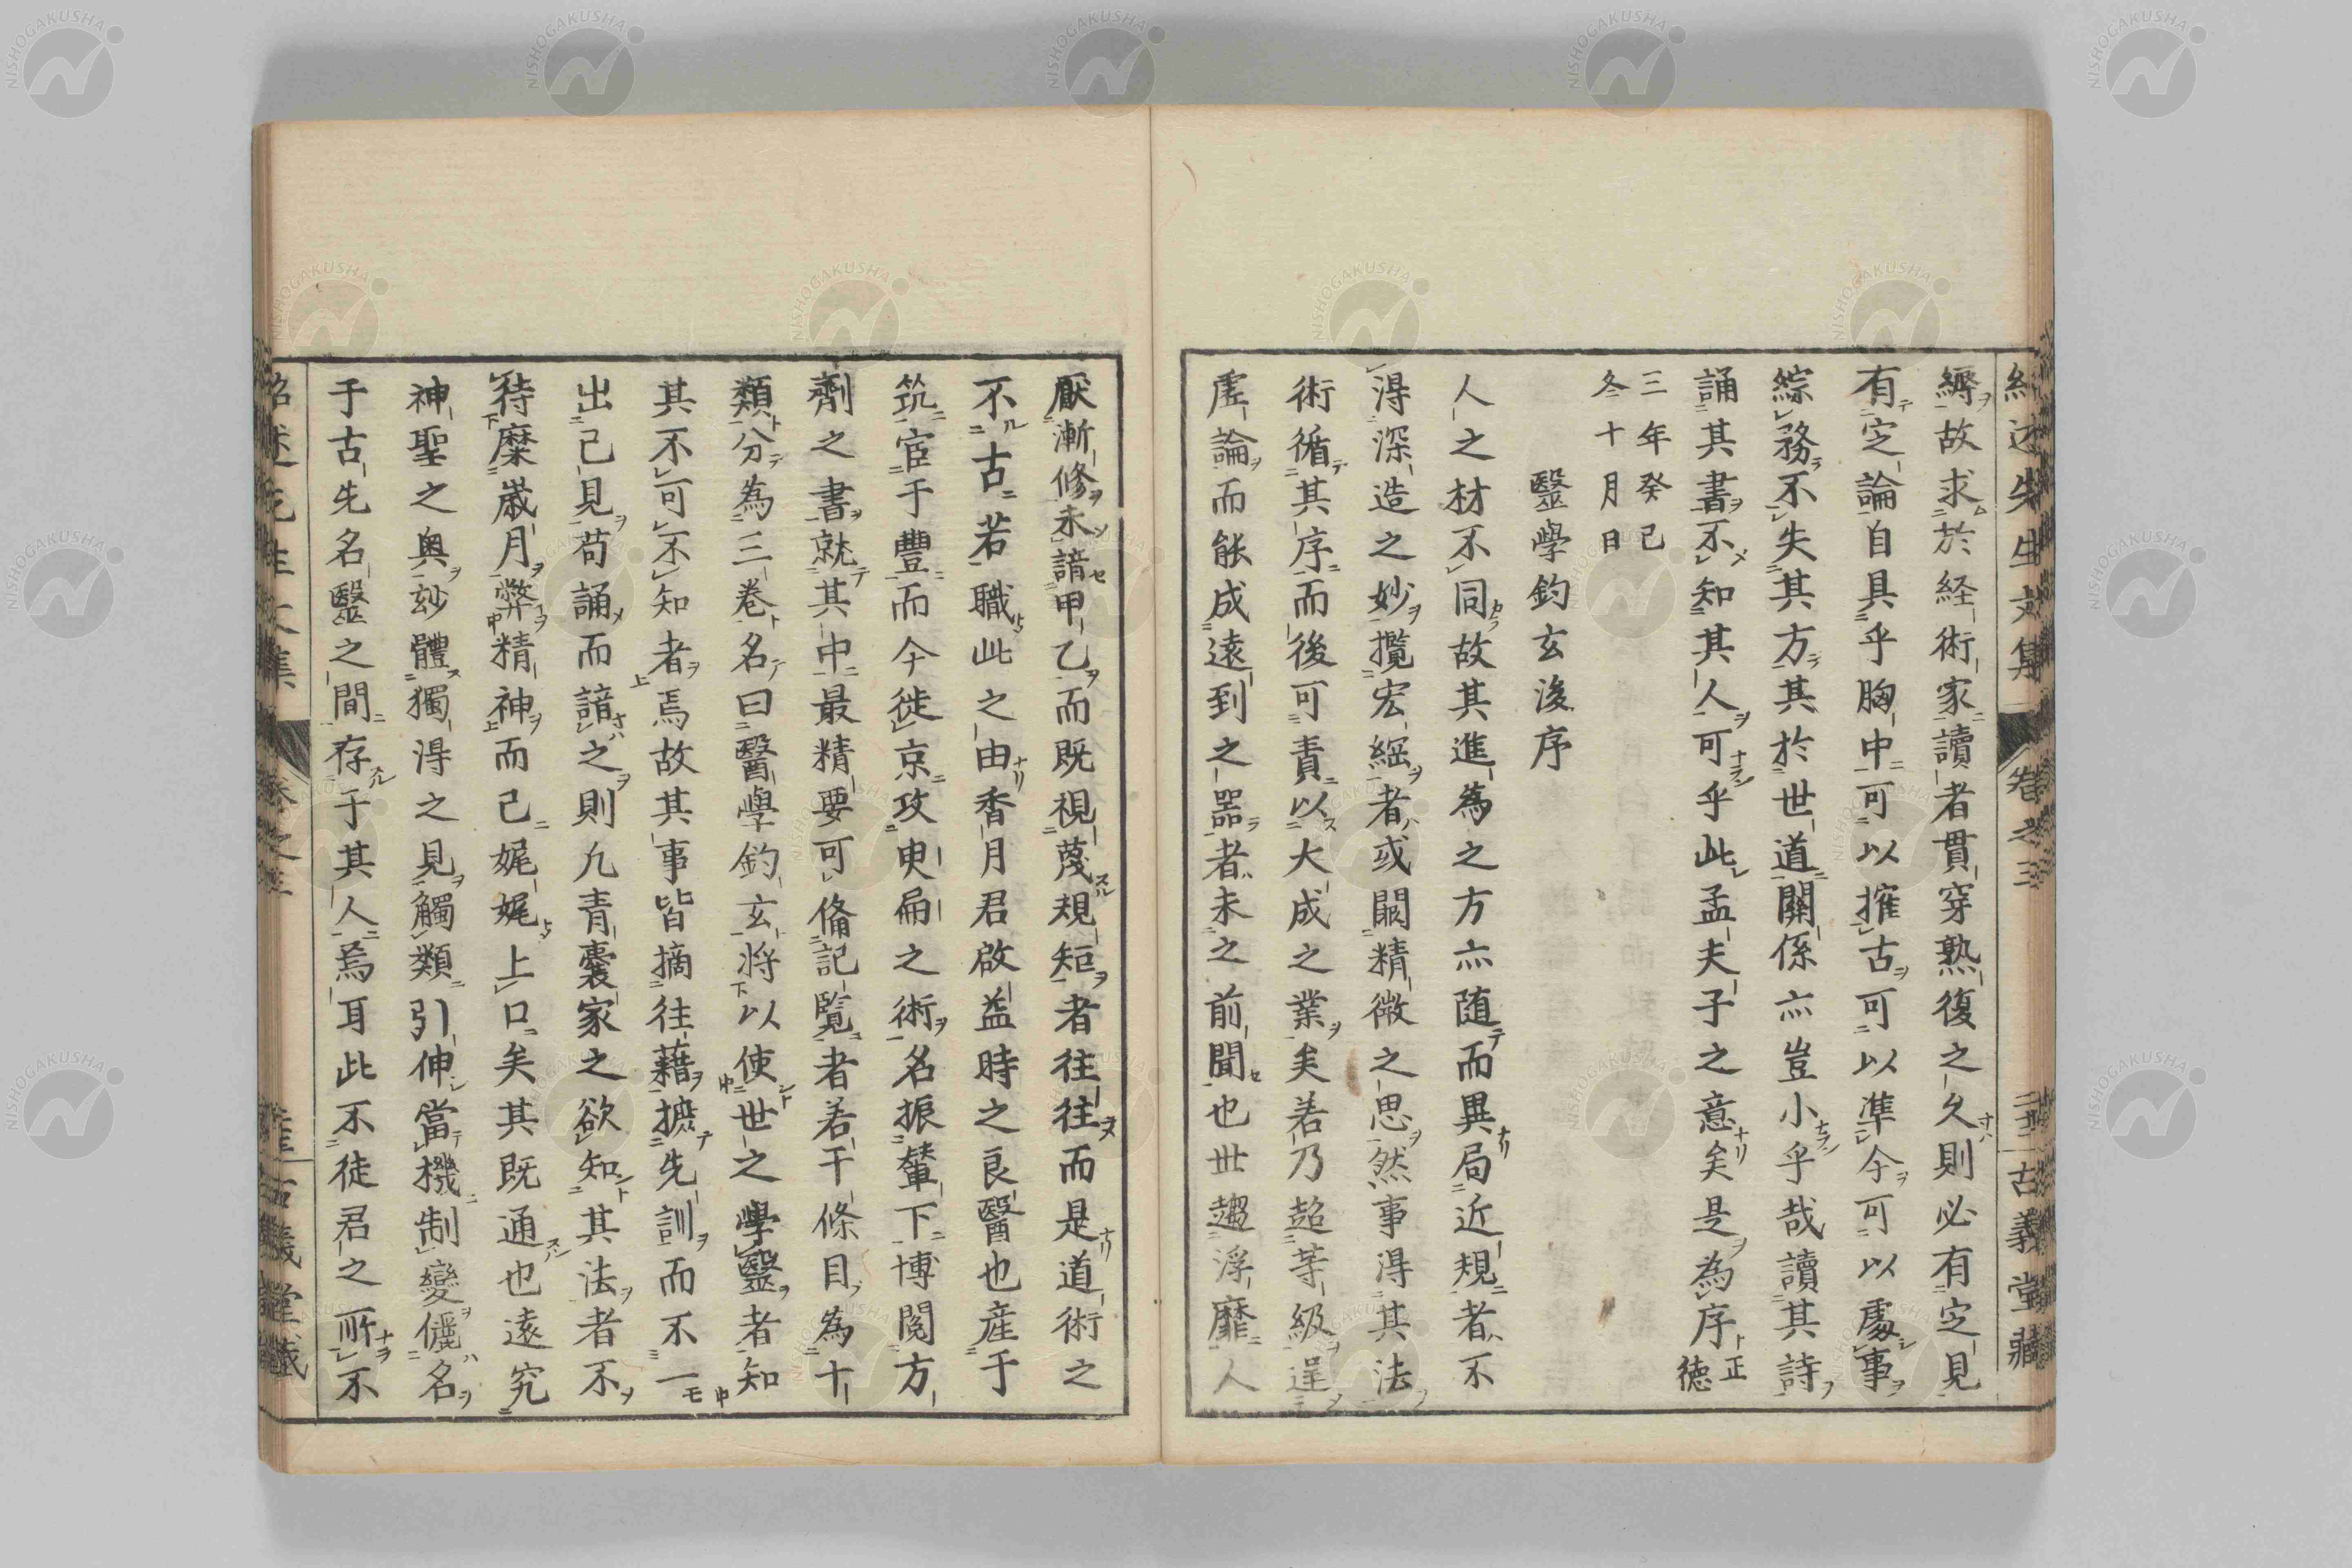 紹述先生文集 卷之三 古義堂藏
縟故求於経術家讀者貫穿熟復之久則必有定見
有定論自具乎胸中可以搉古可以準今可以處事
綜務不失其方其於世道關係亦豈小乎哉讀其詩
誦其書不知其人可乎此孟夫子之意矣是為序正徳
三年癸巳
冬十月日
毉學鈞玄後序
人之材不同故其進為之方亦随而異局近規者不
得深造之妙攬宏綱者或闕精微之思然事得其法
術循其序而後可責以大成之業矣若乃超等級逞
虚論而能成遠到之器者未之前聞也世趨浮靡人
厭漸修未諳甲乙而既視蔑規矩者往往而是道術之
不古若職此之由香月君啟益時之良醫也産于
筑宦于豐而今徙京攻臾扁之術名振輦下博閲方
劑之書就其中最精要可備記覧者若干條目為十
類分為三卷名曰醫學鈞玄將以使世之學毉者知
其不可不知者焉故其事皆摘往藉摭先訓而不一
出己見苟誦而諳之則凢青囊家之欲知其法者不
待糜歳月弊精神而已娓娓上口矣其既通也遠究
神聖之奥玅體獨得之見觸類引伸當機制變儷名
于古先名毉之間存于其人焉耳此不徒君之所不
紹述先生文集 卷之三 古義堂藏
NISHOGAKUSHA